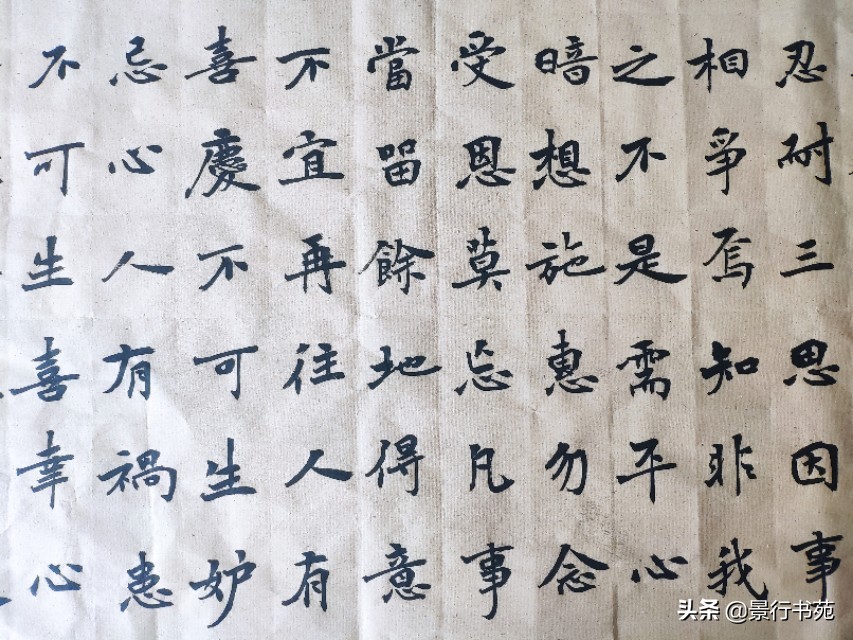 忍耐三思因事
相爭焉知非我
之不是需平心
暗想施惠勿念
受恩莫忘凡事
當留餘地得意
不宜再往人有
喜慶不可生妒
忌心人有禍患
不可生喜幸心
头条 @景行书苑